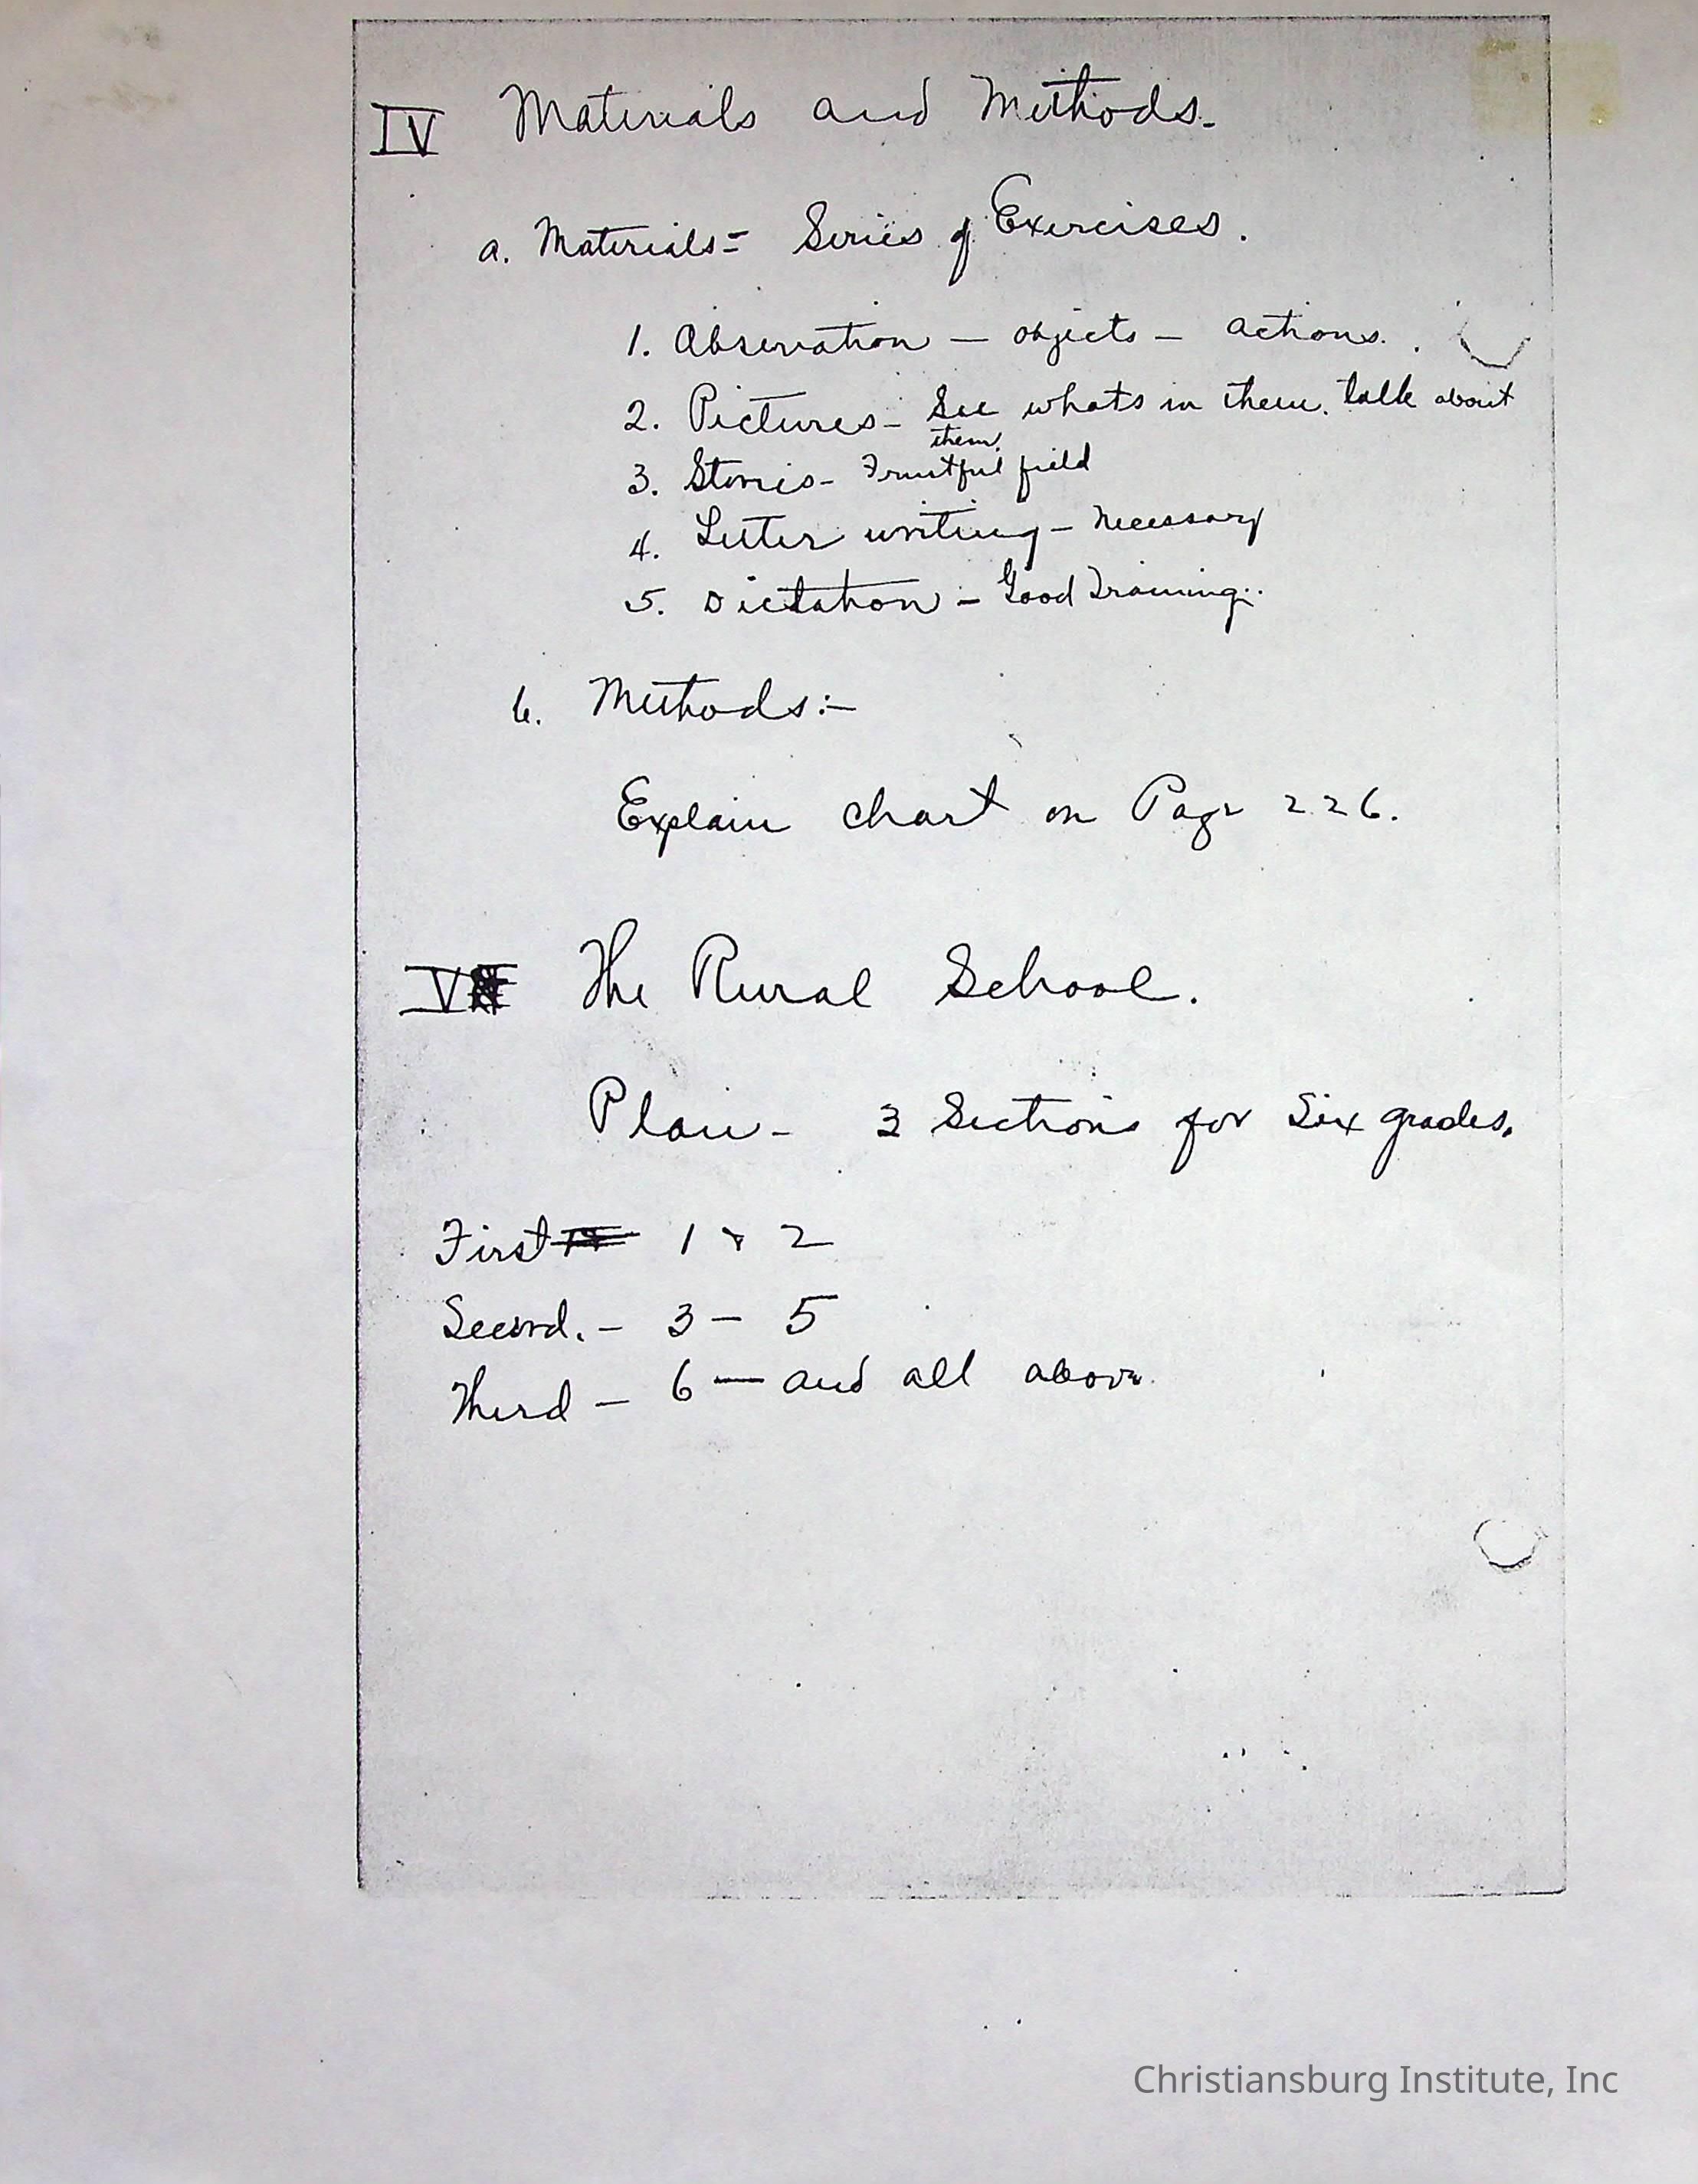 IV Materials and Methods.
a. Materials= Series of Exercises.
1. Observation — objects — actions.
2. Pictures- See whats in them. talk about
them.
3. Stories- Fruitful field
4. Letter writing - necessary
5. Dictation - Good Training.
b. Methods:-
Explain chart on Page 226.
V The Rural School.
Plan- 3 Sections for Six grades.
First 1 & 2
Second. - 3 - 5
Third - 6 — and all above.
Christiansburg Institute, Inc